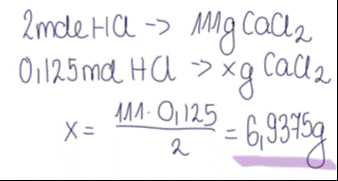 2mol HCl -> 111g CaCl₂
0,125mol HCl -> xg CaCl₂
x = 111·0,125 / 2 = 6,9375g